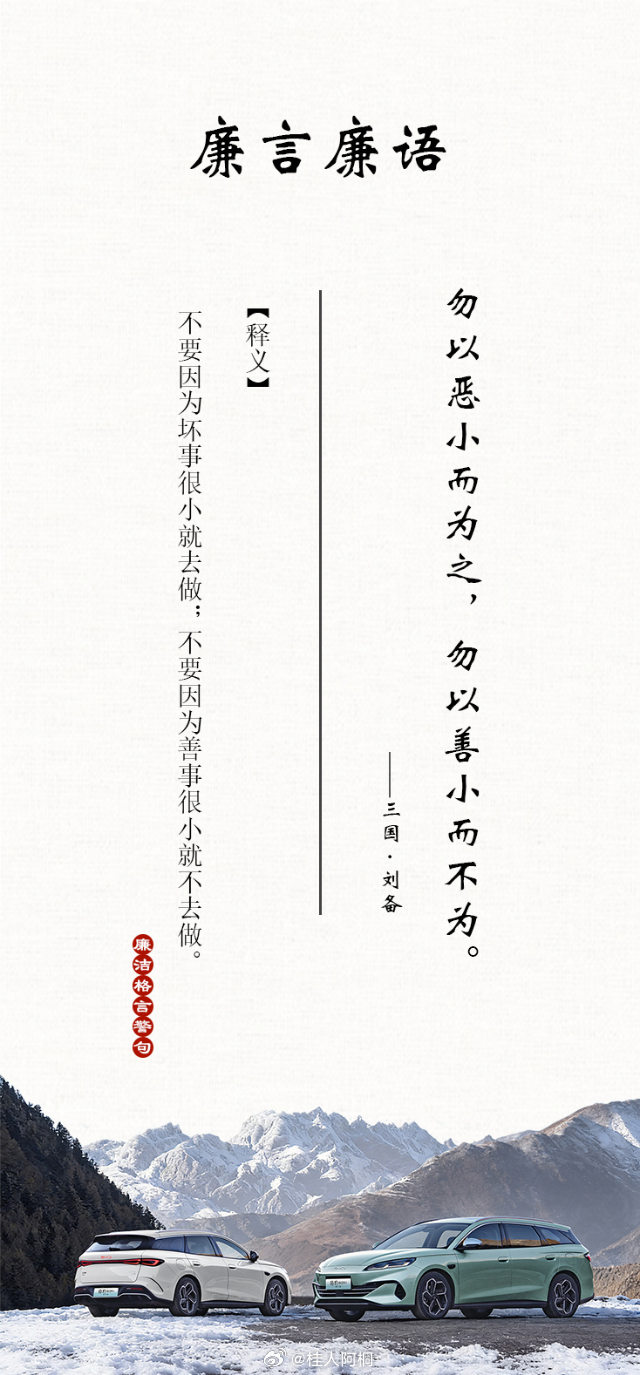 廉言廉语
勿以恶小而为之，勿以善小而不为。
——三国·刘备
【释义】
不要因为坏事很小就去做；不要因为善事很小就不去做。
廉洁格言警句
@桂人阿桐